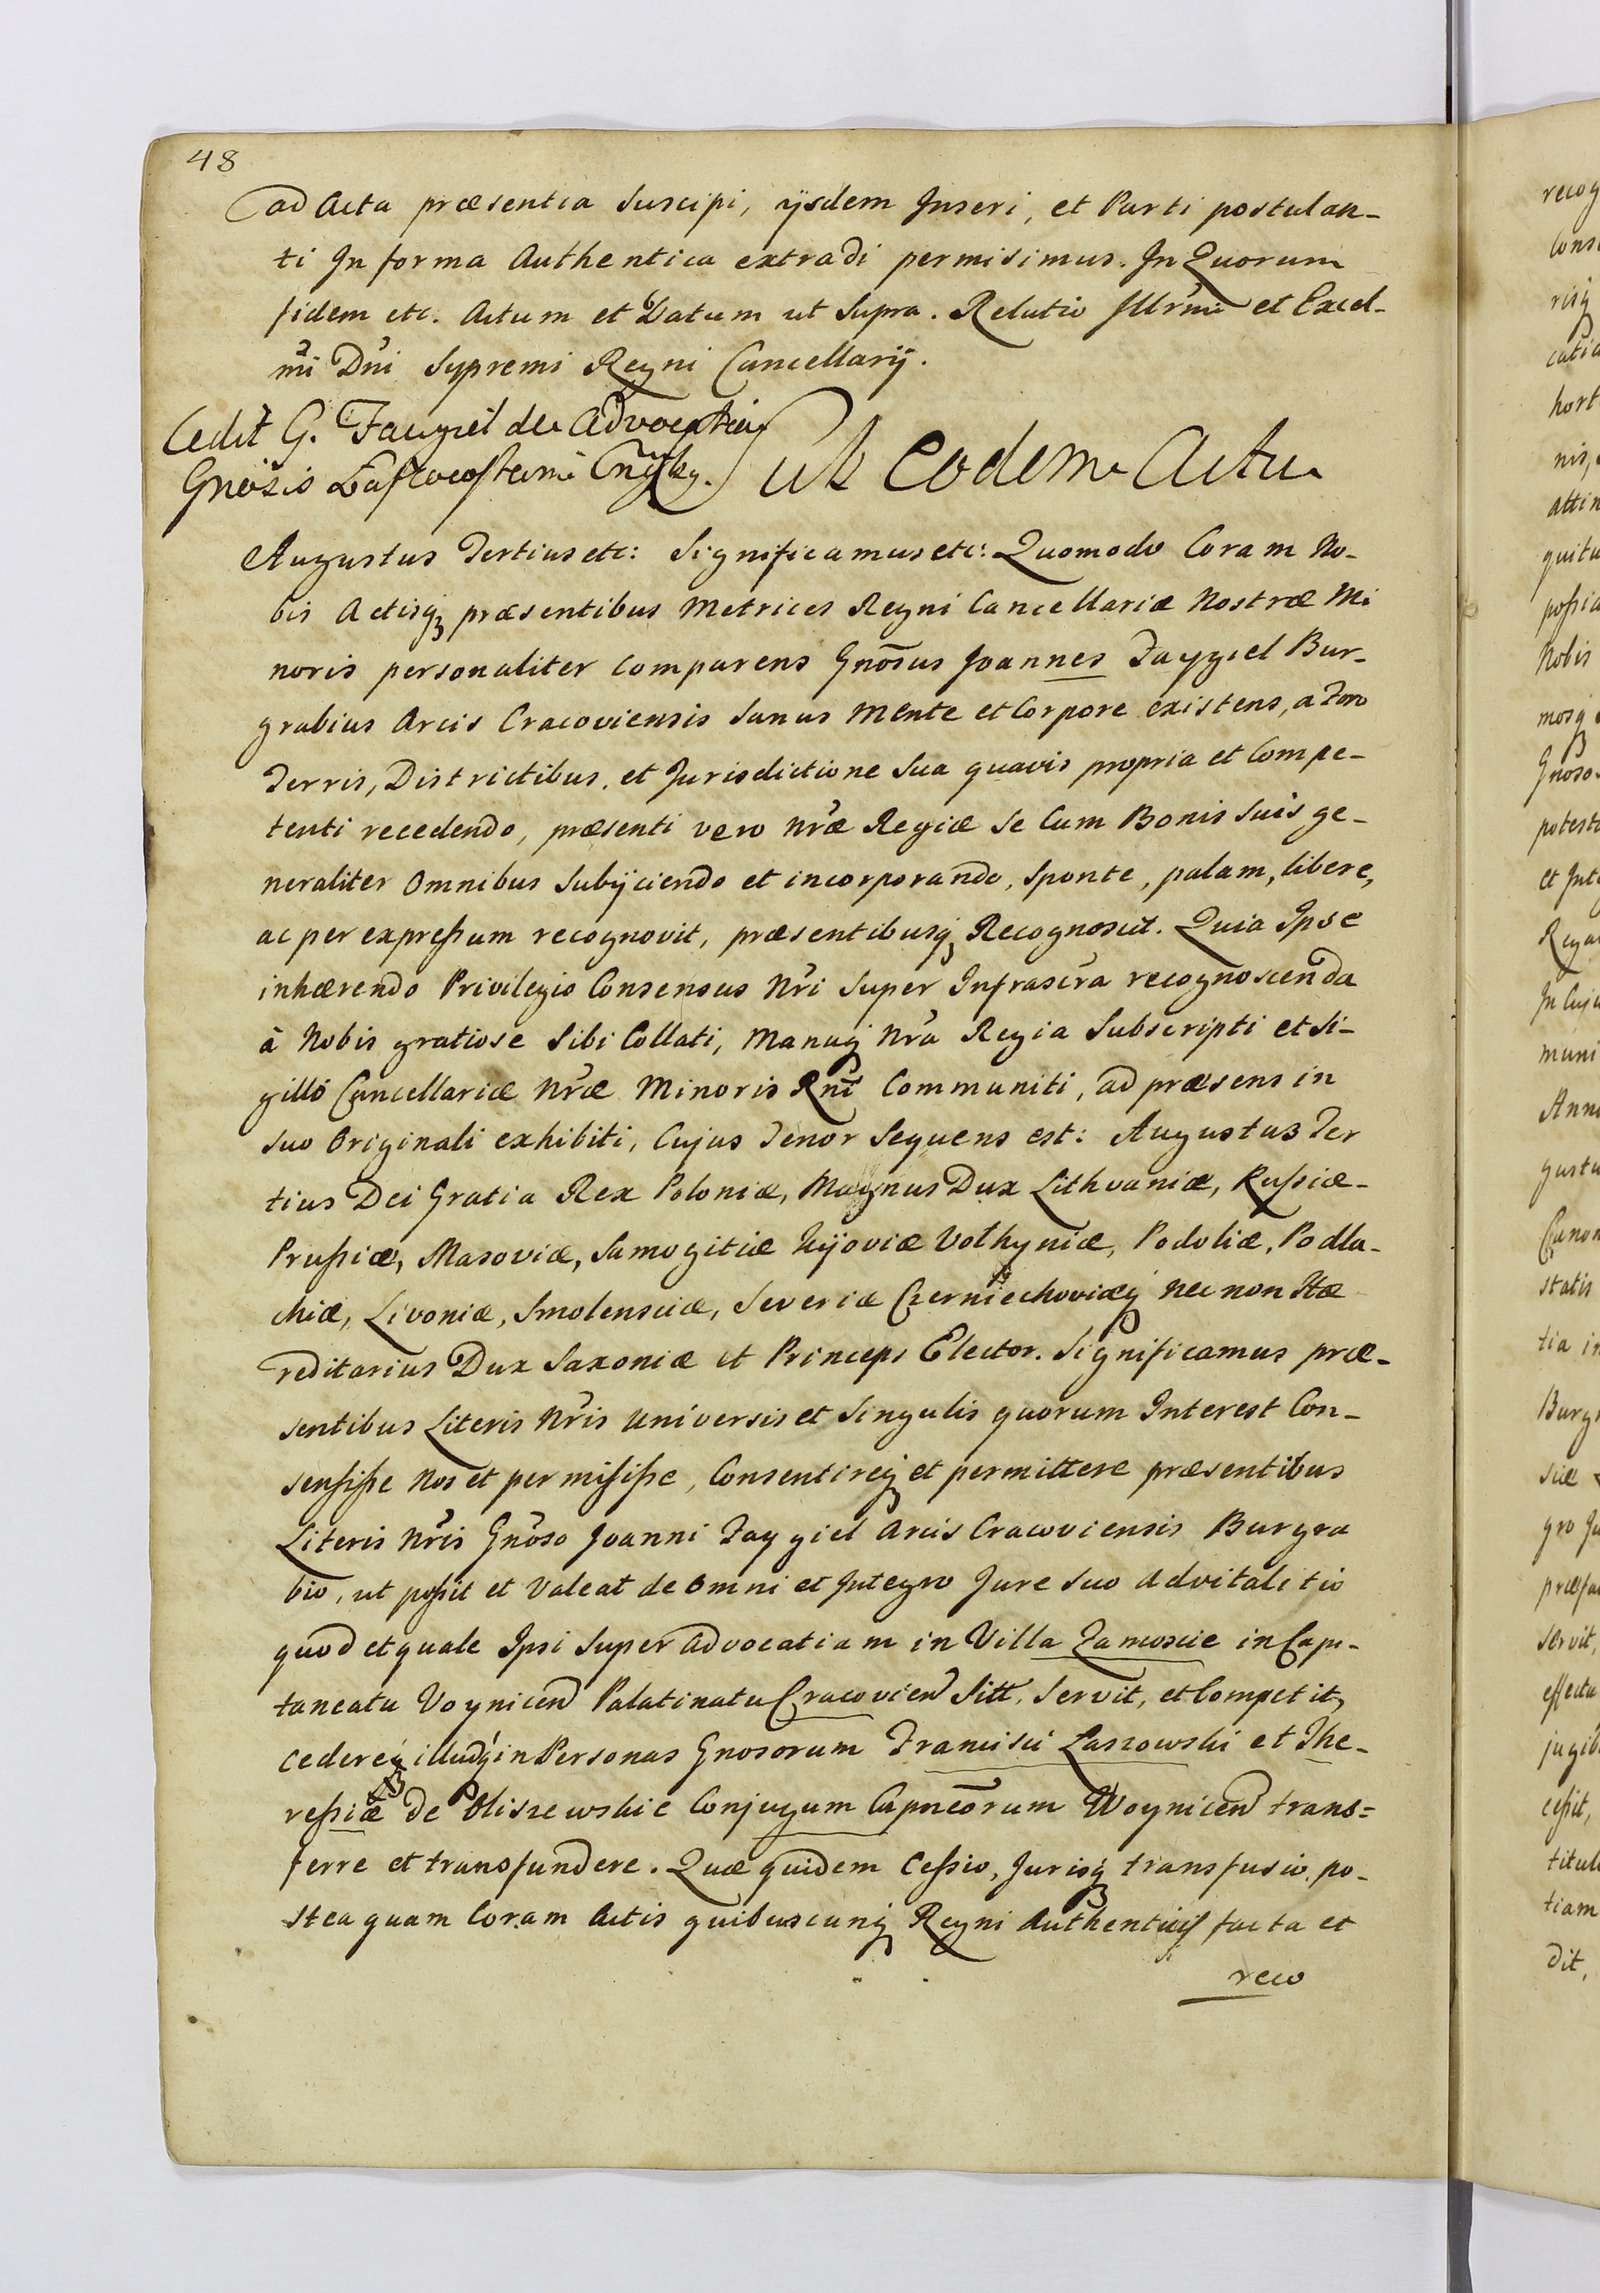 48
ad Acta præsentia Suscipi, ijsdem Inseri, et Parti postulan-
ti In forma Authentica extradi permisimus. In Quorum
fidem etc. Actum et Datum ut Supra. Relatio Illrmi et Excel-
mi Dni Supremi Regni Cancellarij.
Cedit G. Jaugiel de Advocatia
Gnosis
Ut Eodem Actu
Augustus Tertius etc: Significamus etc: Quomodo Coram No-
bis Actisq præsentibus Metrices Regni Cancellariæ Nostræ Mi
noris personaliter Comparens Gnosus Joannes Jaygiel Bur-
grabius Arcis Cracoviensis Sanus Mente et Corpore existens, a
Terris, Districtibus, et Jurisdictione Sua quavis propria et Compe-
tenti recedendo, præsenti vero Nræ Regiæ Se Cum Bonis Suis ge-
neraliter Omnibus Subijciendo et incorporando, Sponte, palam, libere,
ac per expressum recognovit, præsentibusq Recognoscit. Quia Ipse
inhærendo Privilegio Consensus Nri Super Infrascra recognoscenda
à Nobis gratiose Sibi Collati, Manuq Nra Regia Subscripti et Si-
gillo Cancellariæ Nræ Minoris Rni Communiti, ad præsens in
suo Originali exhibiti, Cujus Tenor Sequens est: Augustus Ter
tius Dei Gratia Rex Poloniæ, Magnus Dux Lithvaniæ, Russiæ-
Prussiæ, Masoviæ, Samogitiæ Kijoviæ Volhyniæ, Podoliæ, Podla-
chiæ, Livoniæ, Smolensciæ, Severiæ Czerniechoviæq nec non Hæ
reditarius Dux Saxoniæ et Princeps Elector. Significamus præ-
sentibus Literis Nris Universis et Singulis quorum Interest Con-
sensisse Nos et permisisse, Consentireq et permittere præsentibus
Literis Nris Gnoso Joanni Jaygiel Arcis Cracoviensis Burgra
bio, ut possit et Valeat de Omni et Integro Jure Suo Advitalitio
quod et quale Ipsi Super Advocatiam in Villa Zamoscie in Capi-
taneatu Voynicen Palatinatu Cracovien Sitt, Servit, et Competit,
cedereq illudq in Personas Gnosorum Francisci Laszowski et The-
ressiæ de Oliszewskie Conjugum Capneorum Woynicen trans=
ferre et transfundere. Quæ quidem Cessio, Jurisq transfusio, po-
stea quam Coram Actis quibuscunq Regni Authenticis facta et
reco